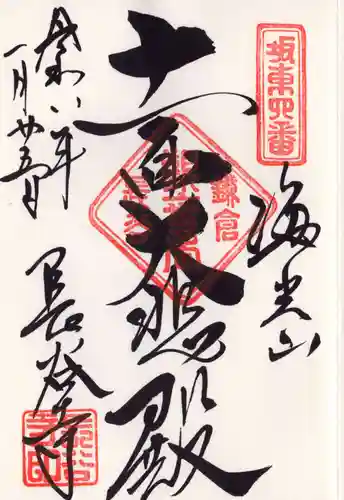 坂東四番
海光山
鎌倉
十一面大悲殿
八年
一月廿五日
長谷寺
長谷
寺印